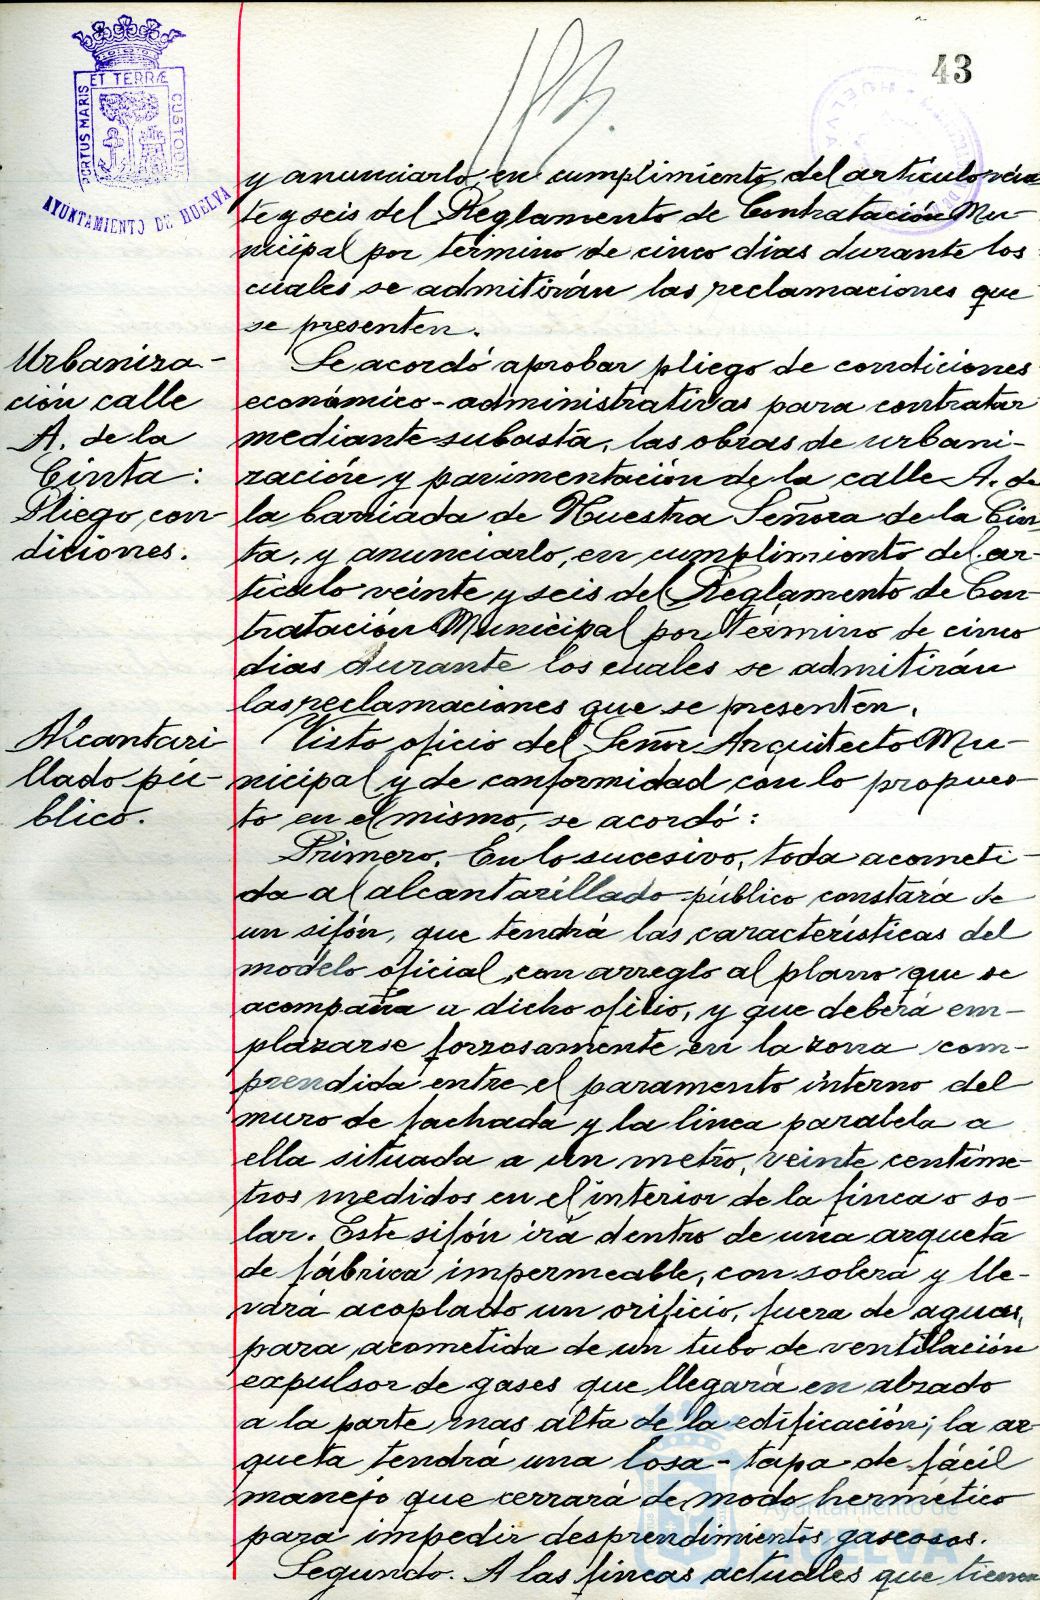 43
PORTUS MARIS ET TERRÆ CUSTODIA
AYUNTAMIENTO DE HUELVA
y anunciarlo, en cumplimiento del artículo vein
te y seis del Reglamento de Contratación Mu-
nicipal por término de cinco dias durante los
cuales se admitirán las reclamaciones que
se presenten.
Urbaniza-
ción calle
A. de la
Cinta:
Pliego, con-
diciones.
Se acordó aprobar pliego de condiciones
económico-administrativas para contratar
mediante subasta, las obras de urbani-
zación y pavimentación de la calle A. de
la barriada de Nuestra Señora de la Cin
ta, y anunciarlo, en cumplimiento del ar-
tículo veinte y seis del Reglamento de Con-
tratación Municipal por término de cinco
dias durante los cuales se admitirán
las reclamaciones que se presenten.
Alcantari
llado pú-
blico.
Visto oficio del Señor Arquitecto Mu-
nicipal y de conformidad con lo propues-
to en el mismo, se acordó:
Primero. En lo sucesivo, toda acometi-
da al alcantarillado público constará de
un sifón, que tendrá las características del
modelo oficial, con arreglo al plano que se
acompaña a dicho oficio, y que deberá em-
plazarse forzosamente en la zona com-
prendida entre el paramento interno del
muro de fachada y la linea paralela a
ella situada a un metro, veinte centíme-
tros medidos en el interior de la finca o so-
lar. Este sifón irá dentro de una arqueta
de fábrica impermeable, con solera y lle-
vará acoplado un orificio, fuera de aguas,
para acometida de un tubo de ventilación
expulsor de gases que llegará en alzado
a la parte mas alta de la edificación; la ar-
queta tendrá una losa-tapa de fácil
manejo que cerrará de modo hermético
para impedir desprendimientos gaseosos.
Segundo. A las fincas actuales que tienen
Ayuntamiento de
HUELVA